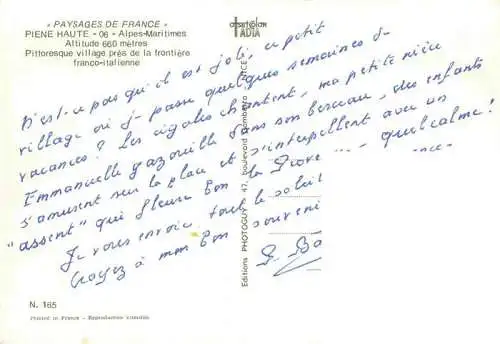 « PAYSAGES DE FRANCE »
PIENE HAUTE - 06 - Alpes-Maritimes
Altitude 660 mètres
Pittoresque village près de la frontière
franco-italienne
ADIA
N'est-ce pas qu'il est joli, ce petit
village où je passe quelques semaines de
vacances ? Les cigales chantent, ma petite nièce
Emmanuelle gazouille dans son berceau, des enfants
s'amusent sur la place et s'interpellent avec un
"assent" qui fleure bon la quel calme !
Je vous envoie tout le soleil
Croyez à mon bon souveni
P. Ba
Editions PHOTOGUY 47, boulevard NICE
N. 165
Printed in France - Reproduction interdite